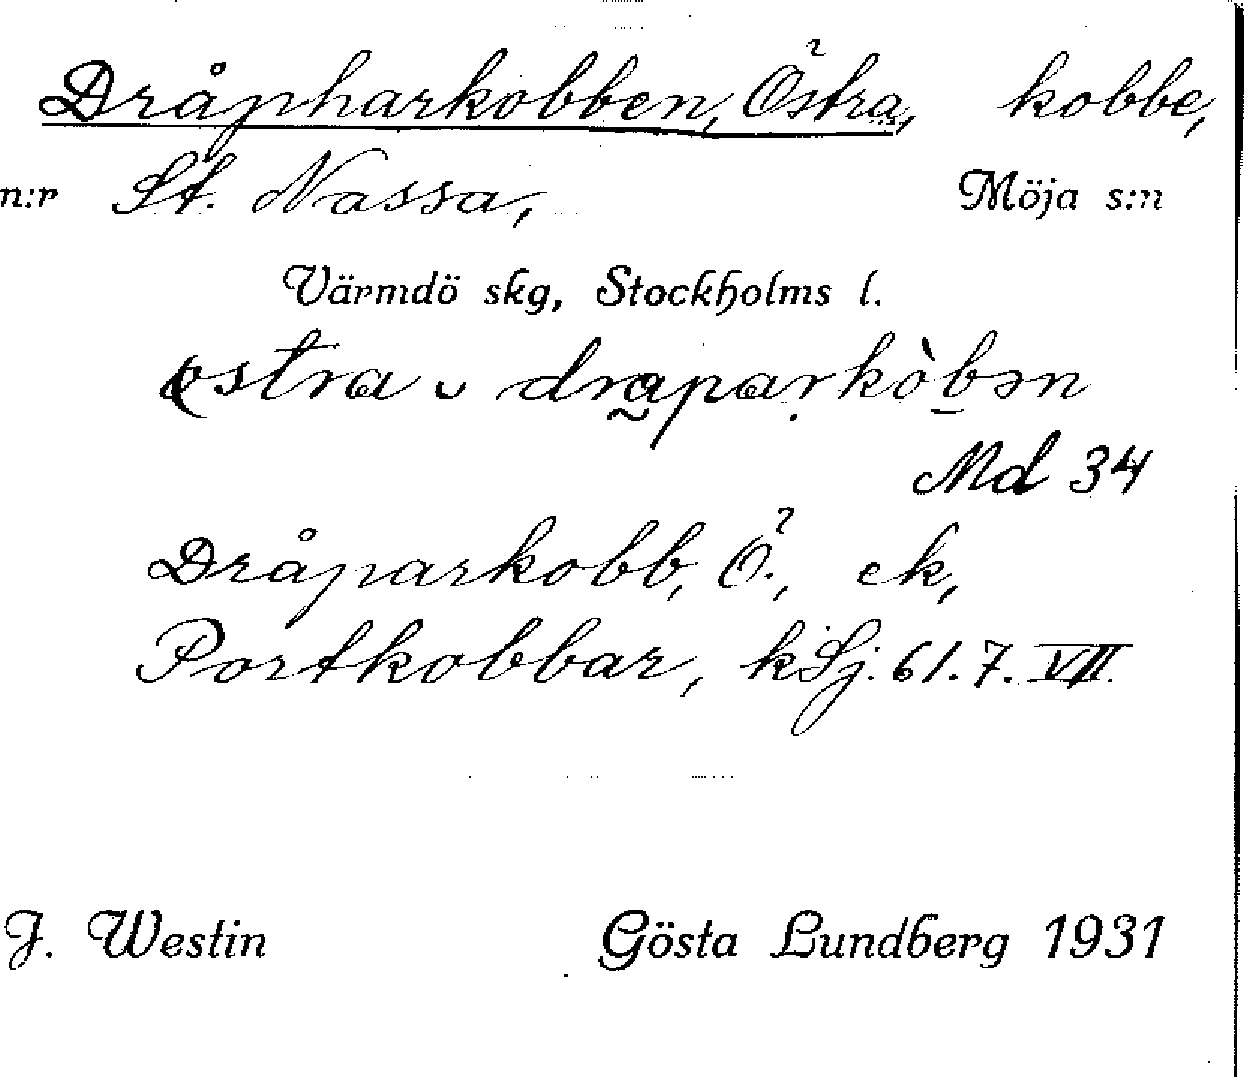 Dråpharkobben, Östra, kobbe,
n:r St. Nassa, Möja s:n
Värmdö skg, Stockholms l.
ostra ᴗ draparkòbən
Md 34
Dråparkobb, Ö., ek,
Portkobbar, kSj. 61.7. VII
J. Westin Gösta Lundberg 1931